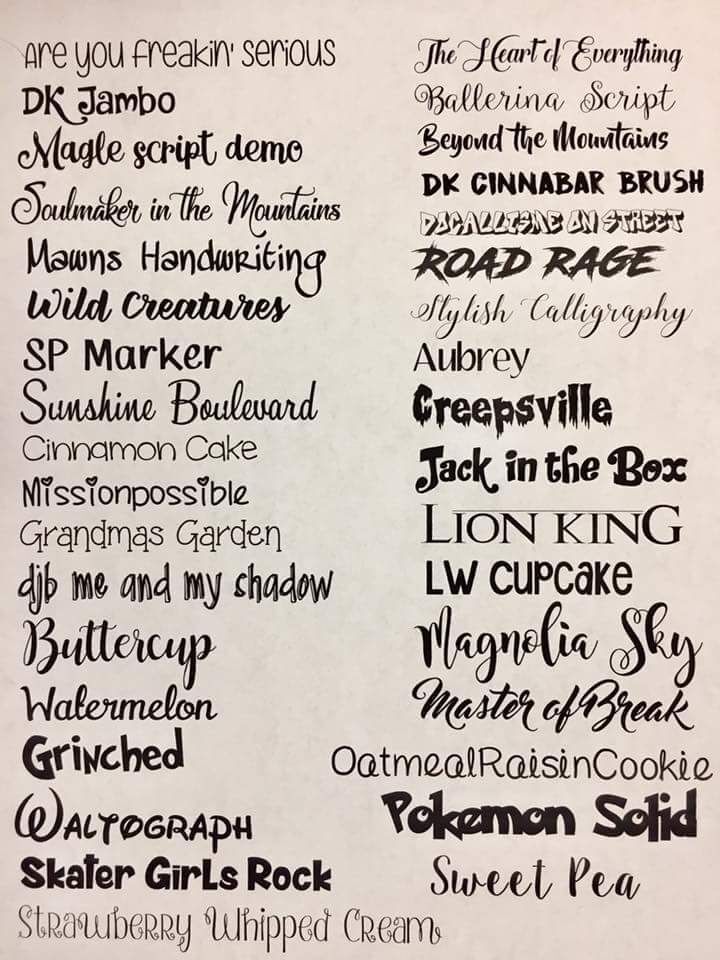 Are you freakin' serious
DK Jambo
Magle script demo
Soulmaker in the Mountains
Mawns Handwriting
Wild Creatures
SP Marker
Sunshine Boulevard
Cinnamon Cake
Missionpossible
Grandmas Garden
djb me and my shadow
Buttercup
Watermelon
Grinched
Waltograph
Skater Girls Rock
Strawberry Whipped Cream
The Heart of Everything
Ballerina Script
Beyond the Mountains
DK CINNABAR BRUSH
DOCALLISME ON STREET
ROAD RAGE
Stylish Calligraphy
Aubrey
Creepsville
Jack in the Box
LION KING
LW CUPCAKE
Magnolia Sky
Master of Break
OatmealRaisinCookie
Pokemon Solid
Sweet Pea